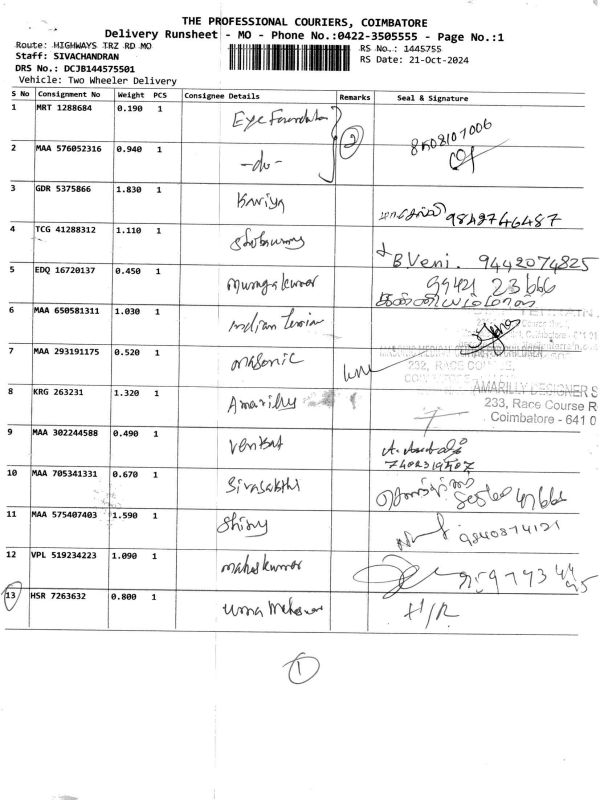 THE PROFESSIONAL COURIERS, COIMBATORE
Delivery Runsheet - MO - Phone No.:0422-3505555 - Page No.:1
Route: HIGHWAYS TRZ RD MO
RS No.: 1445755
Staff: SIVACHANDRAN
RS Date: 21-Oct-2024
DRS No.: DCJB144575501
Vehicle: Two Wheeler Delivery
S No Consignment No Weight PCS Consignee Details Remarks Seal & Signature
1 MRT 1288684 0.190 1 Eye Foundation 2
2 MAA 576052316 0.940 1 -do-
3 GDR 5375866 1.830 1 9842746487
4 TCG 41288312 1.110 1 B.Veni. 9442074825
5 EDQ 16720137 0.450 1 Murugakumar 99421 23666
6 MAA 650581311 1.030 1 Indian
7 MAA 293191175 0.520 1 Masonic
232, RACE
8 KRG 263231 1.320 1 Amarilly
AMARILLY DESIGNER S
233, Race Course R
Coimbatore - 641 0
9 MAA 302244588 0.490 1 Venkat
10 MAA 705341331 0.670 1 Sivasakthi
11 MAA 575407403 1.590 1 Shiny 9840874121
12 VPL 519234223 1.090 1 Maheskumar
13 HSR 7263632 0.800 1 Uma H/R
1